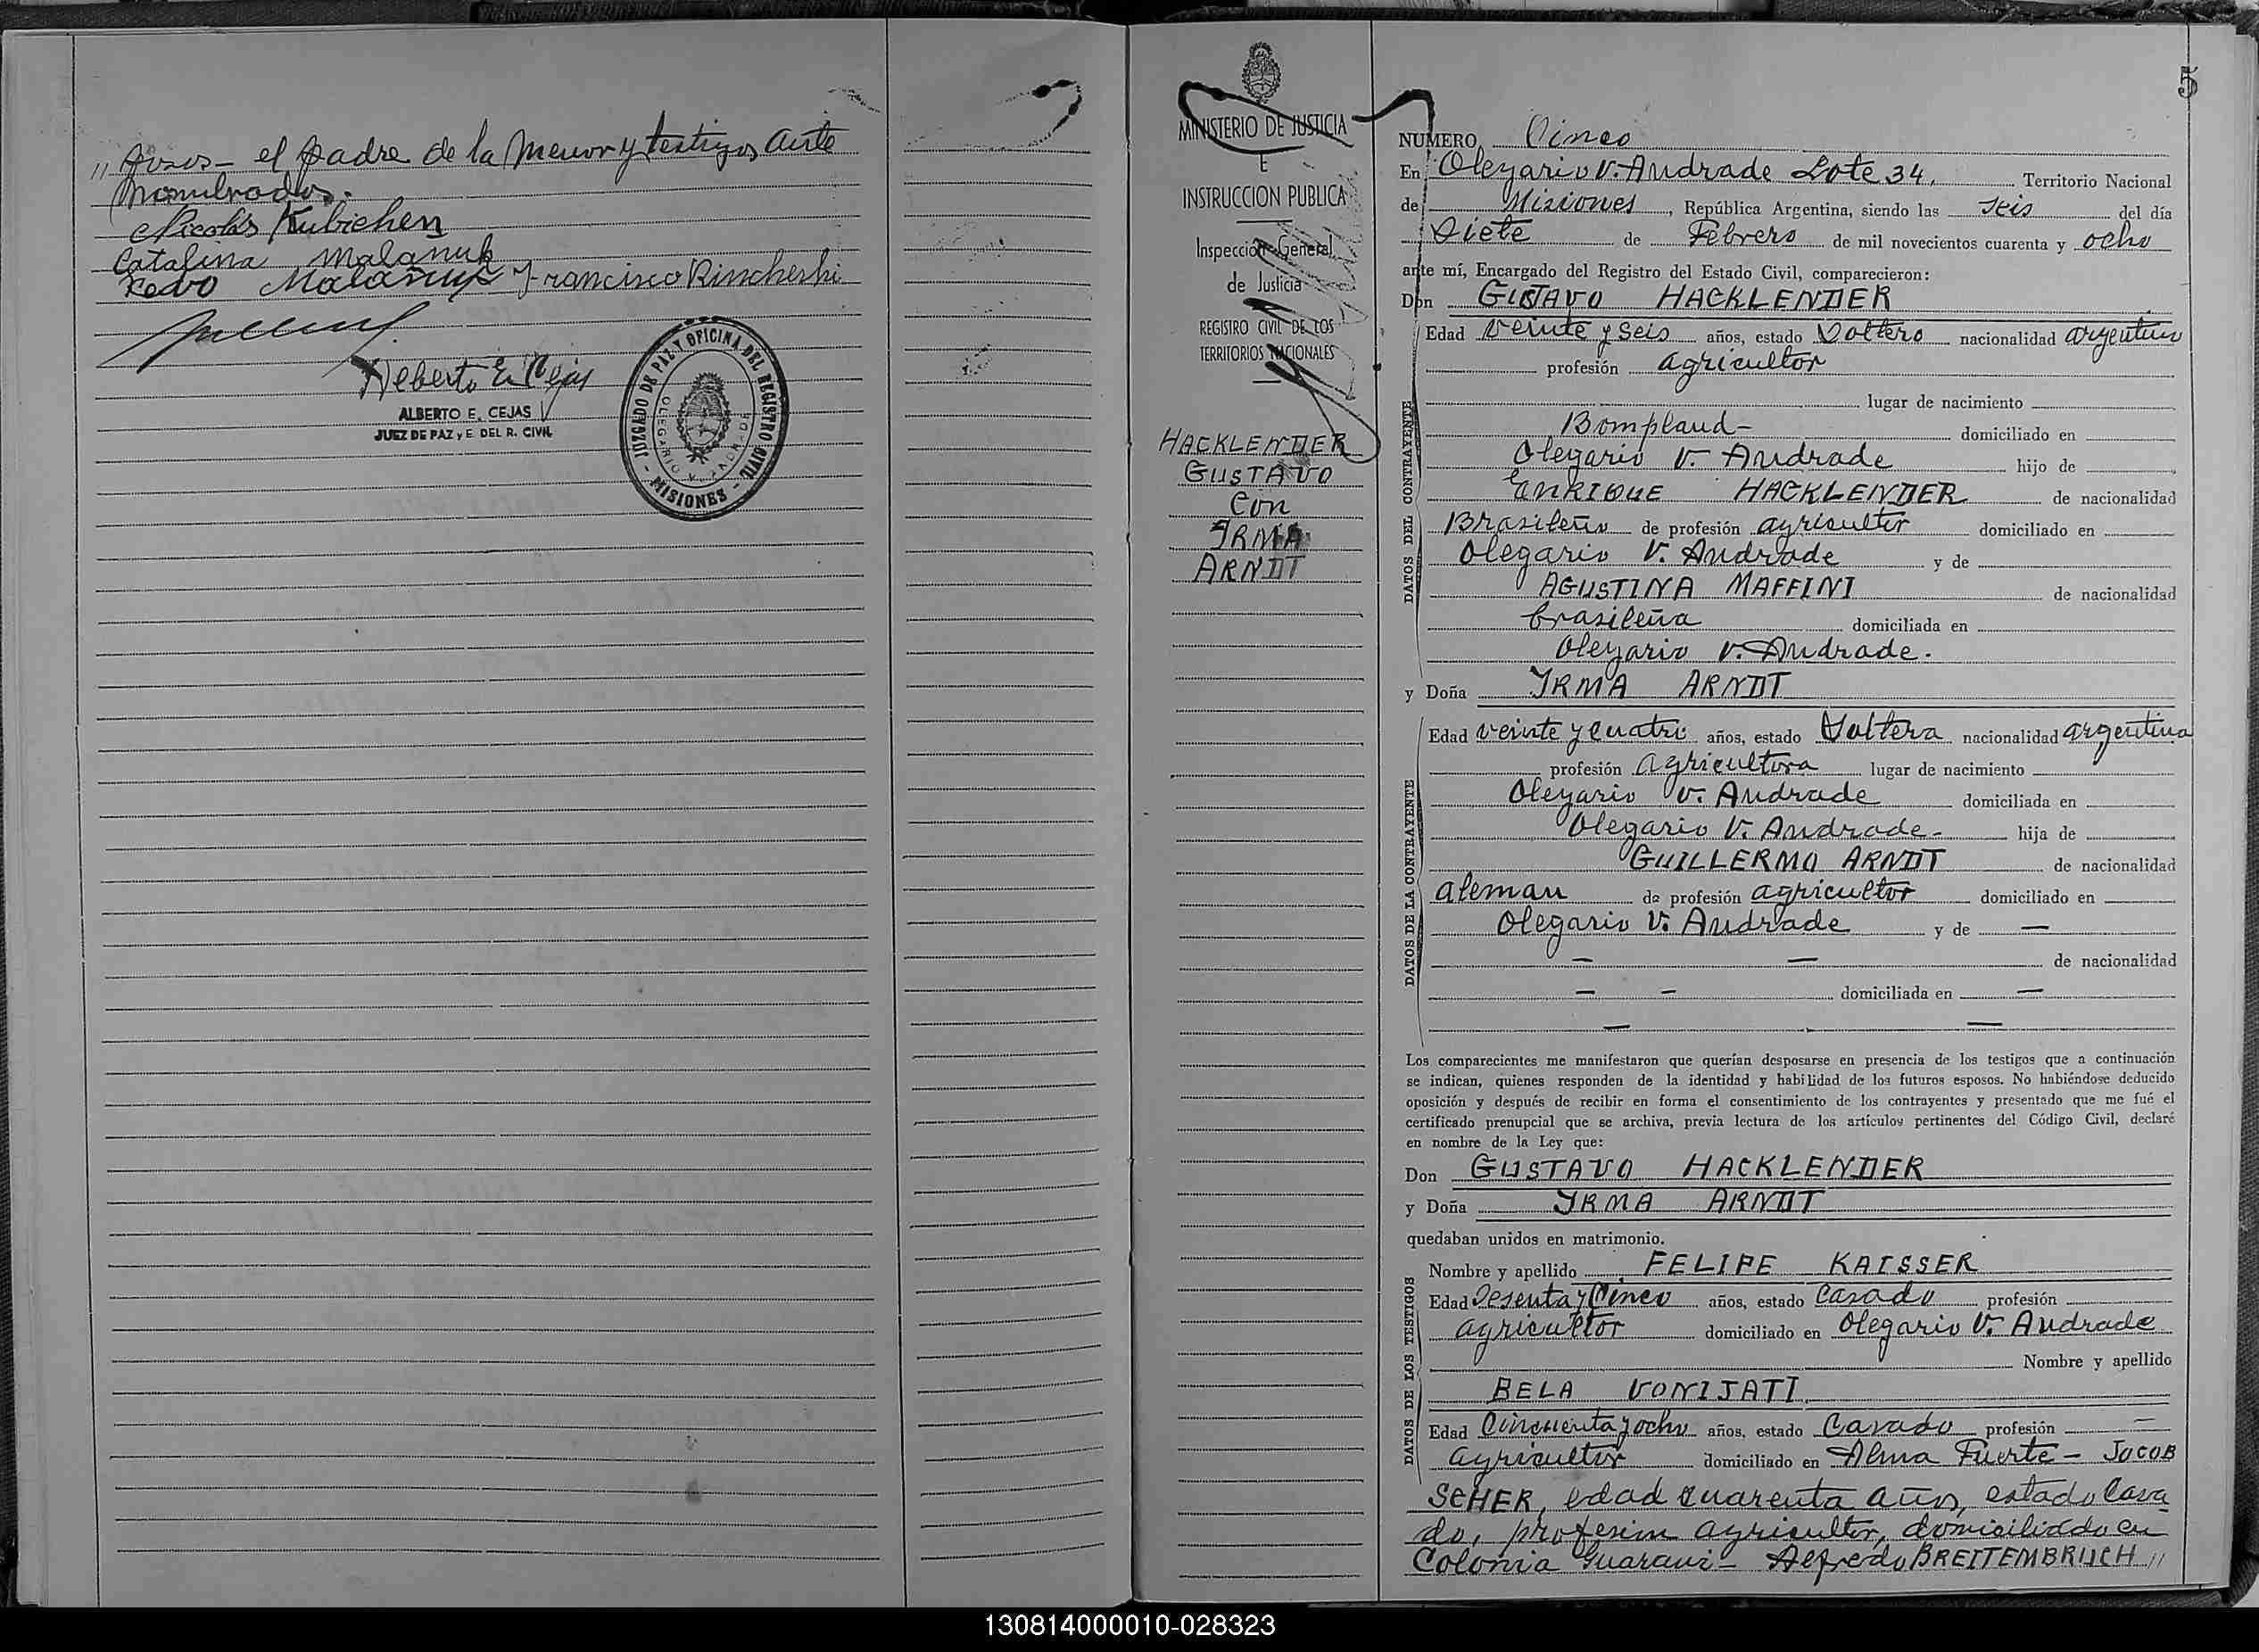 " posos - el padre de la menor y testigos ante
nombrados.
Nicolás Kubichen
Catalina Malanuk
Malañuk Francisco Rincheski
Alberto E. Cejas
ALBERTO E. CEJAS
JUEZ DE PAZ y E. DEL R. CIVIL
JUZGADO DE PAZ Y OFICINA DEL REGISTRO CIVIL
OLEGARIO V. ANDRADE
- MISIONES -
MINISTERIO DE JUSTICIA
E
INSTRUCCION PUBLICA
Inspección General
de Justicia
REGISTRO CIVIL DE LOS
TERRITORIOS NACIONALES
HACKLENDER
GUSTAVO
Con
IRMA
ARNDT
5
NUMERO Cinco
En Olegario V. Andrade Lote 34, Territorio Nacional
de Misiones, República Argentina, siendo las seis del día
Siete de Febrero de mil novecientos cuarenta y ocho
ante mí, Encargado del Registro del Estado Civil, comparecieron:
Don GUSTAVO HACKLENDER
DATOS DEL CONTRAYENTE
Edad veinte y seis años, estado Soltero nacionalidad argentino
profesión agricultor
lugar de nacimiento
Bompland - domiciliado en
Olegario V. Andrade hijo de
ENRIQUE HACKLENDER de nacionalidad
Brasileño de profesión agricultor domiciliado en
Olegario V. Andrade y de
AGUSTINA MAFFINI de nacionalidad
brasileña domiciliada en
Olegario V. Andrade.
y Doña IRMA ARNDT
DATOS DE LA CONTRAYENTE
Edad veinte y cuatro años, estado Soltera nacionalidad argentina
profesión agricultora lugar de nacimiento
Olegario V. Andrade domiciliada en
Olegario V. Andrade - hija de
GUILLERMO ARNDT de nacionalidad
aleman de profesión agricultor domiciliado en
Olegario V. Andrade y de —
— — de nacionalidad
— — domiciliada en —
— —
Los comparecientes me manifestaron que querían desposarse en presencia de los testigos que a continuación
se indican, quienes responden de la identidad y habilidad de los futuros esposos. No habiéndose deducido
oposición y después de recibir en forma el consentimiento de los contrayentes y presentado que me fué el
certificado prenupcial que se archiva, previa lectura de los artículos pertinentes del Código Civil, declaré
en nombre de la Ley que:
Don GUSTAVO HACKLENDER
y Doña IRMA ARNDT
quedaban unidos en matrimonio.
DATOS DE LOS TESTIGOS
Nombre y apellido FELIPE KAISSER
Edad Sesenta y Cinco años, estado Casado profesión
agricultor domiciliado en Olegario V. Andrade
Nombre y apellido
BELA VONIJATI
Edad Cincuenta y ocho años, estado Casado profesión —
agricultor domiciliado en Alma Fuerte - JOCOB
SCHER, edad cuarenta años, estado Casa
do, profesion agricultor, domiciliado en
Colonia Guarani - Alfredo BREITEMBRUCH "
130814000010-028323